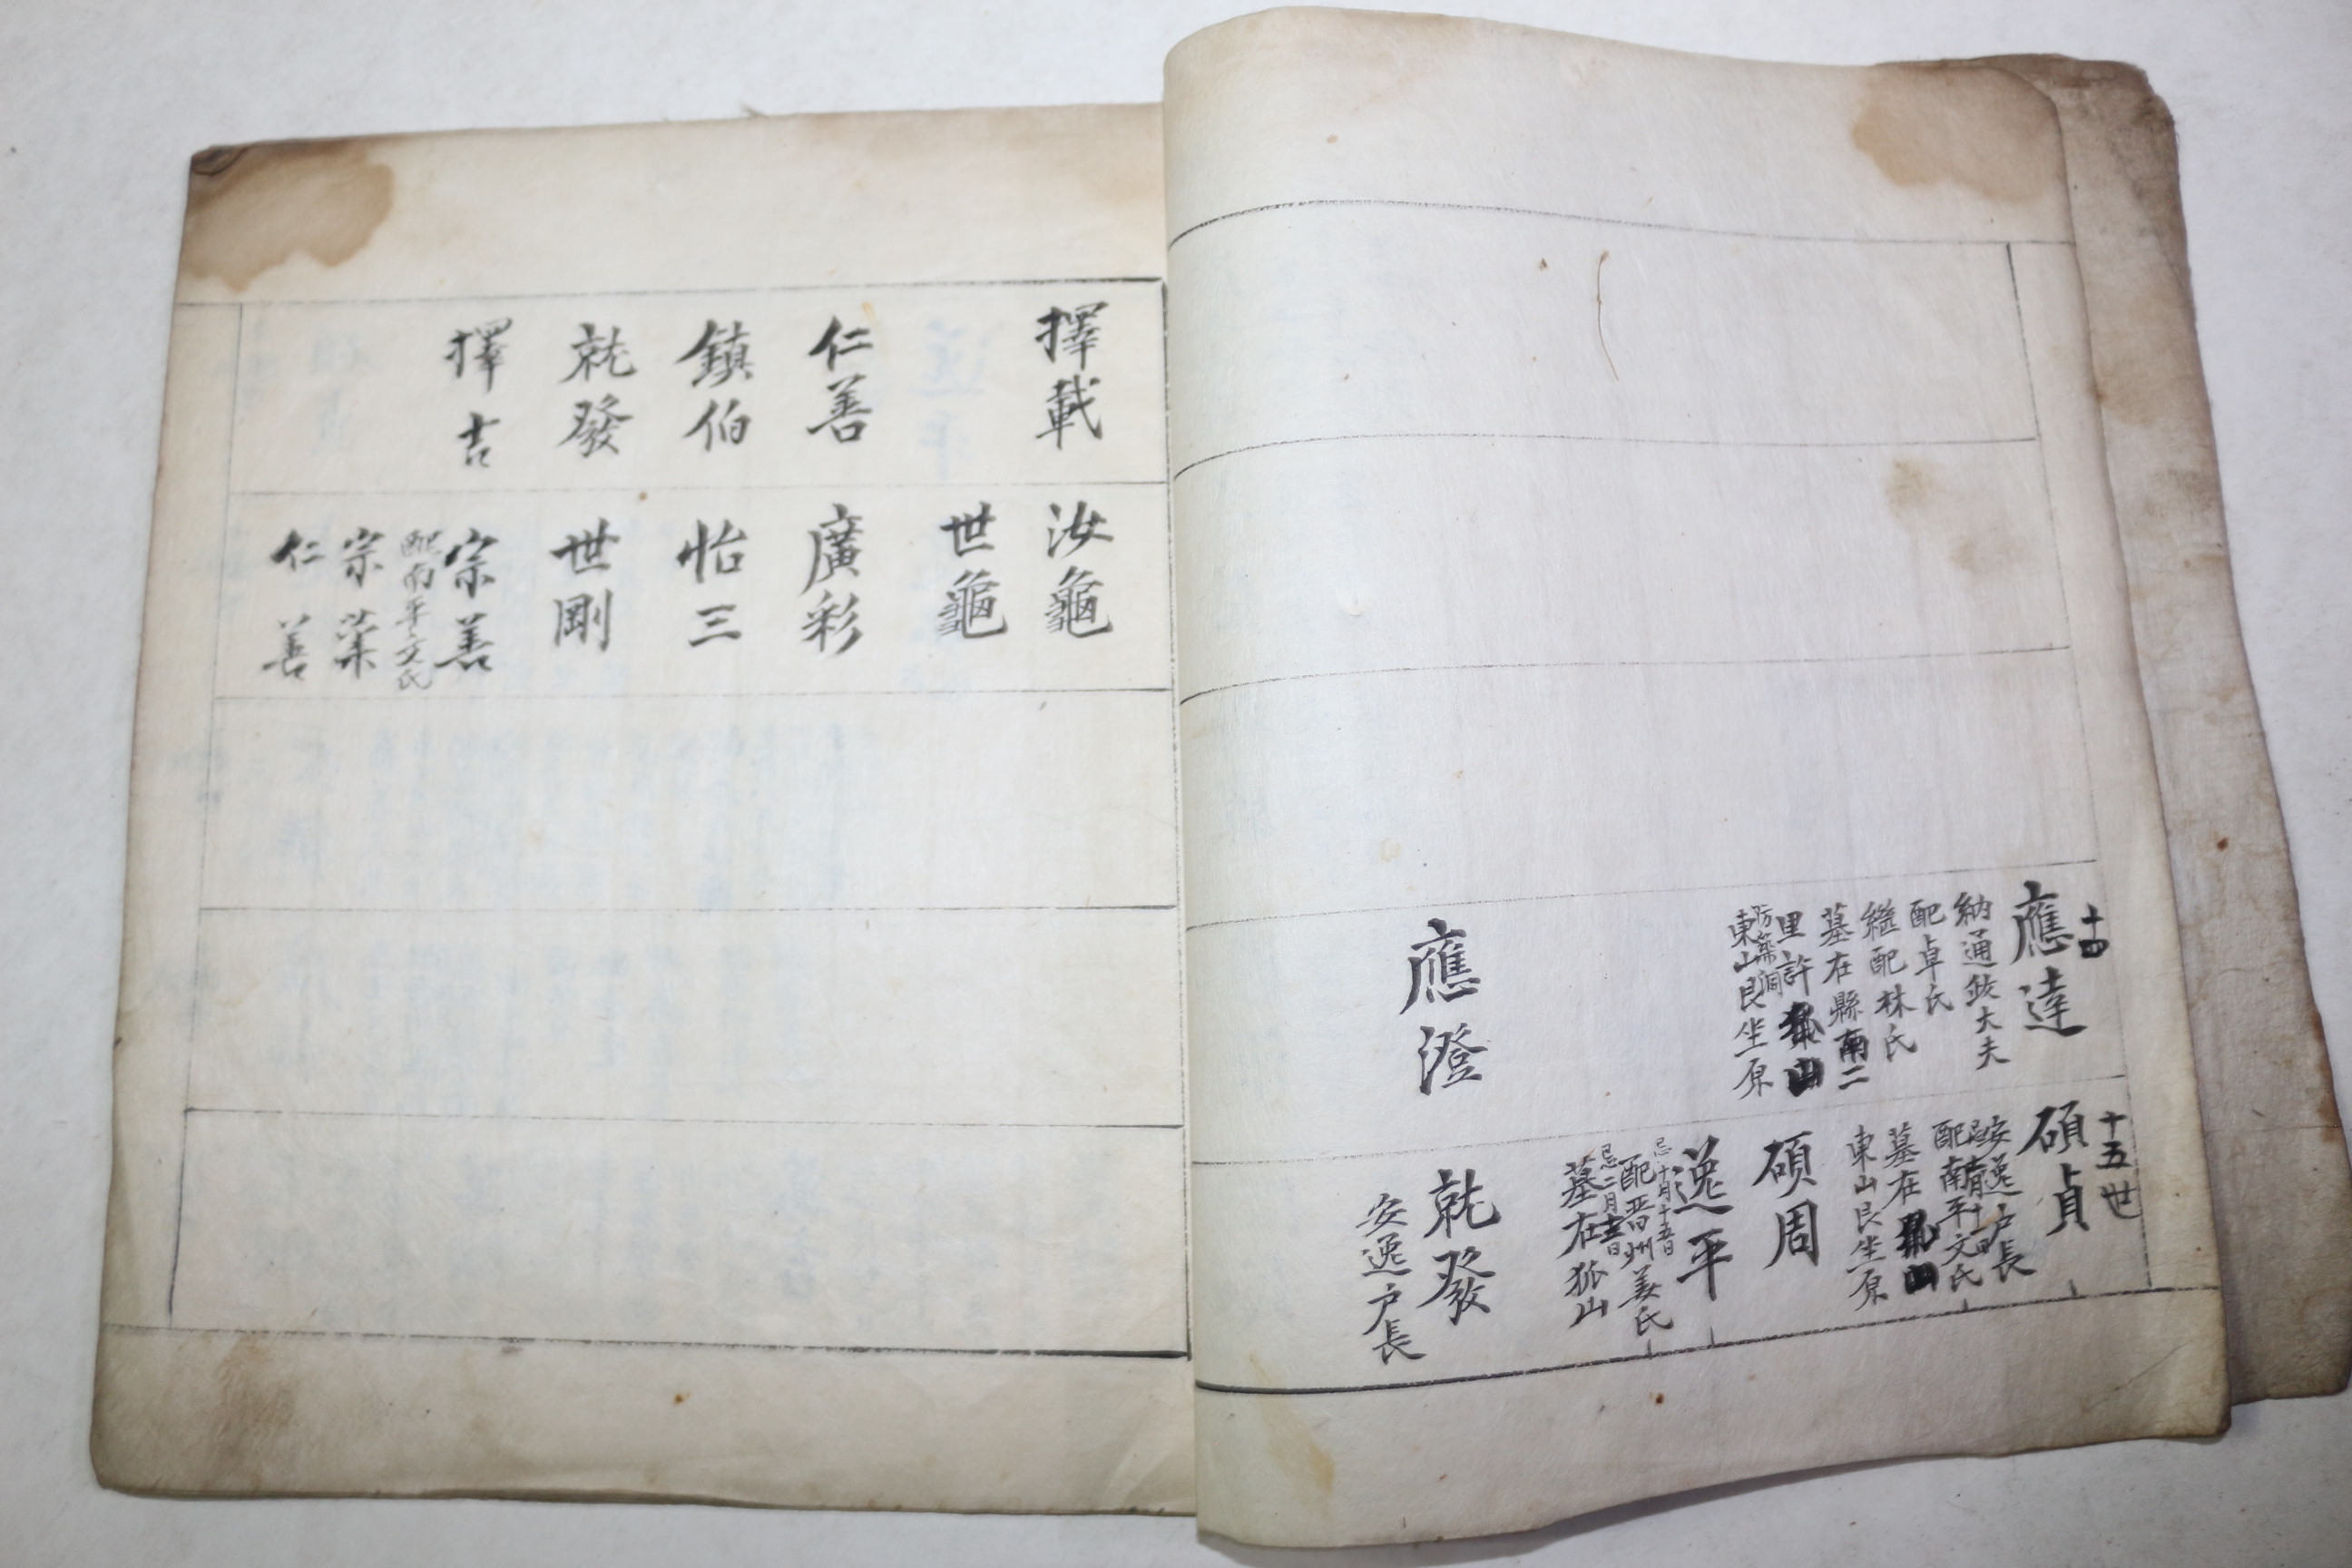 十四
應達
納通政大夫
配卓氏
繼配林氏
墓在縣南二
里許
東山艮坐原
應澄
十五世
碩貞
安逸户長
配南平文氏
墓在
東山艮坐原
碩周
逸平
忌十月十五日
配晋州姜氏
墓在狐山
就發
安逸户長
擇載
仁善
鎮伯
就發
擇吉
汝龜
世龜
廣彩
怡三
世剛
宗善
配南平文氏
宗業
仁善